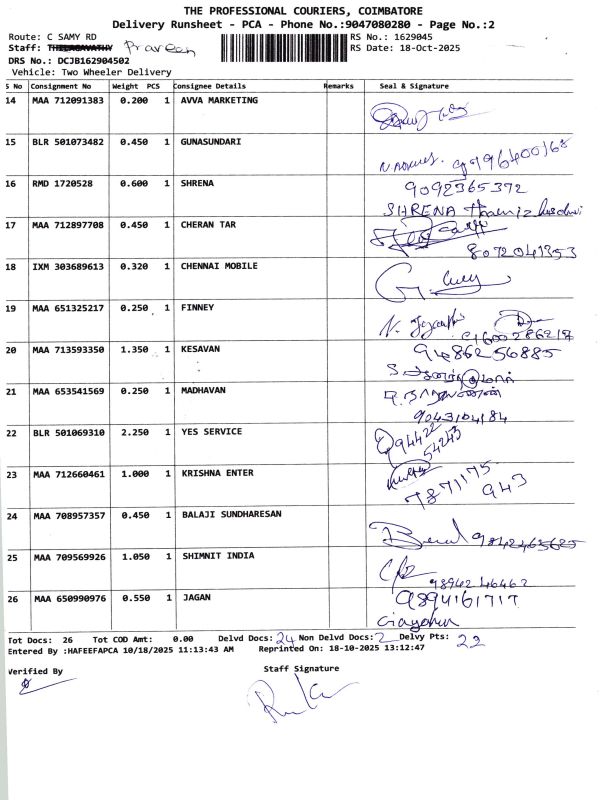 THE PROFESSIONAL COURIERS, COIMBATORE
Delivery Runsheet - PCA - Phone No.:9047080280 - Page No.:2
Route: C SAMY RD
RS No.: 1629045
Staff: Praveen
RS Date: 18-Oct-2025
DRS No.: DCJB162904502
Vehicle: Two Wheeler Delivery
S No Consignment No Weight PCS Consignee Details Remarks Seal & Signature
14 MAA 712091383 0.200 1 AVVA MARKETING
15 BLR 501073482 0.450 1 GUNASUNDARI
16 RMD 1720528 0.600 1 SHRENA 9092365372
SHRENA
17 MAA 712897708 0.450 1 CHERAN TAR
8072041353
18 IXM 303689613 0.320 1 CHENNAI MOBILE
19 MAA 651325217 0.250 1 FINNEY
20 MAA 713593350 1.350 1 KESAVAN 9486256885
21 MAA 653541569 0.250 1 MADHAVAN
9043104184
22 BLR 501069310 2.250 1 YES SERVICE 94422
54245
23 MAA 712660461 1.000 1 KRISHNA ENTER
7871175
943
24 MAA 708957357 0.450 1 BALAJI SUNDHARESAN
25 MAA 709569926 1.050 1 SHIMNIT INDIA
9894246462
26 MAA 650990976 0.550 1 JAGAN 9894161717
Tot Docs: 26 Tot COD Amt: 0.00 Delvd Docs: 24 Non Delvd Docs: 2 Delvy Pts: 22
Entered By :HAFEEFAPCA 10/18/2025 11:13:43 AM Reprinted On: 18-10-2025 13:12:47
Verified By
Staff Signature